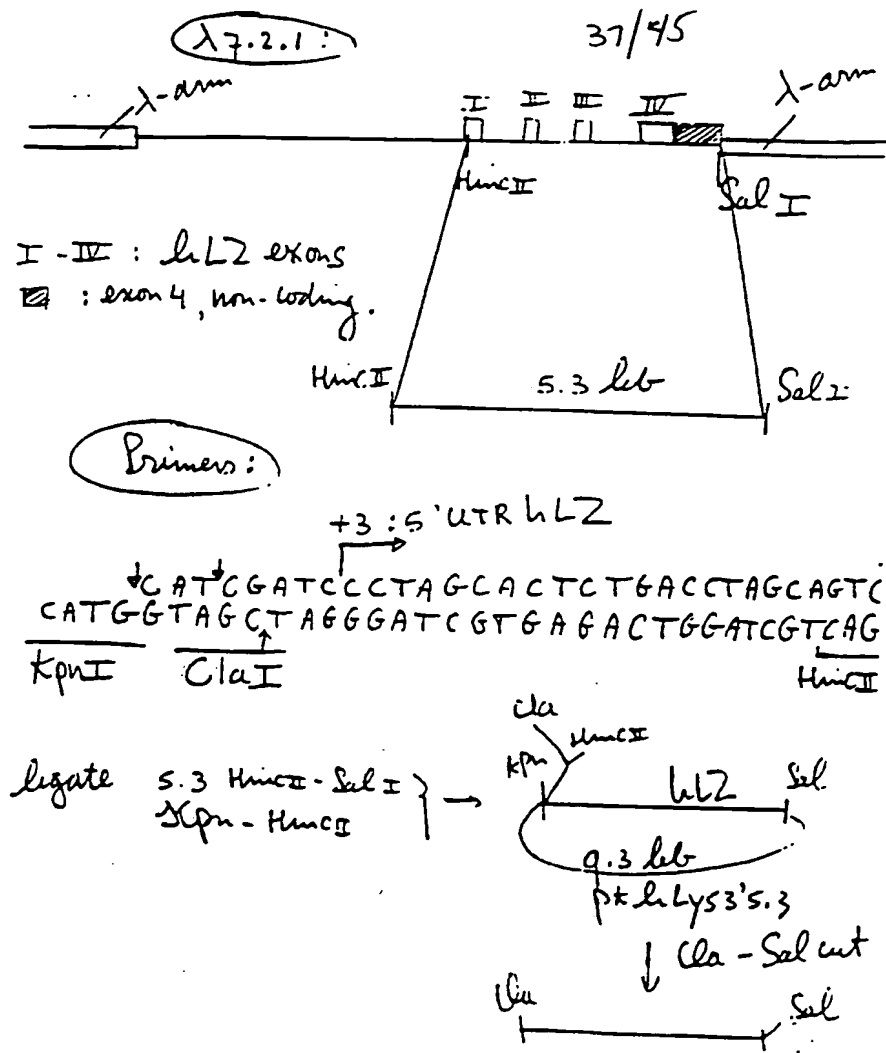 λ7.2.1: 37/45
λ-arm I II III IV λ-arm
HincII Sal I
I-IV : hLZ exons
: exon 4, non-coding.
HincII 5.3 kb Sal I
Primers:
+3 : 5' UTR hLZ
CATCGATCCCTAGCACTCTGACCTAGCAGTC
CATGGTAGCTAGGGATCGTGAGACTGGATCGTCAG
KpnI ClaI HincII
Cla
HincII
Kpn hLZ Sal
ligate 5.3 HincII-Sal I
Kpn-HincII
9.3 kb
phLys3'5.3
Cla-Sal cut
Cla Sal